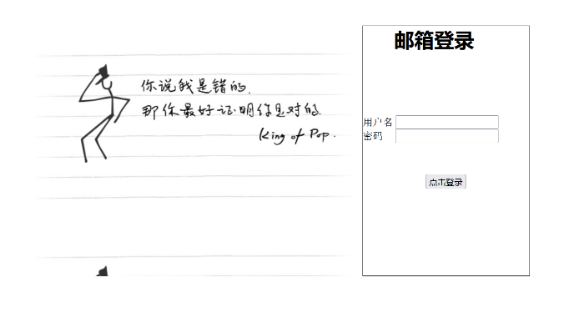 你说我是错的.
那你最好证明你是对的
King of Pop.
邮箱登录
用户名
密码
点击登录